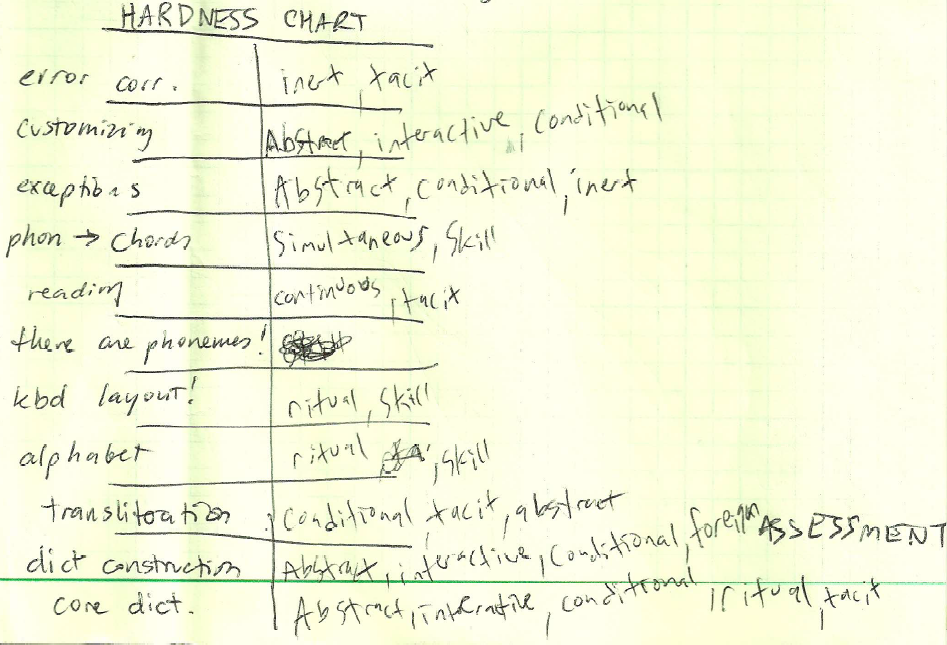 HARDNESS CHART
error corr. inert, tacit
customizing Abstract, interactive, conditional
exceptions Abstract, conditional, inert
phon → chords Simultaneous, Skill
reading continuous, tacit
there are phonemes!
kbd layout! ritual, Skill
alphabet ritual, Skill
transliteration Conditional, tacit, abstract
dict construction Abstract, interactive, Conditional, foreign ASSESSMENT
core dict. Abstract, interative, conditional, ritual, tacit